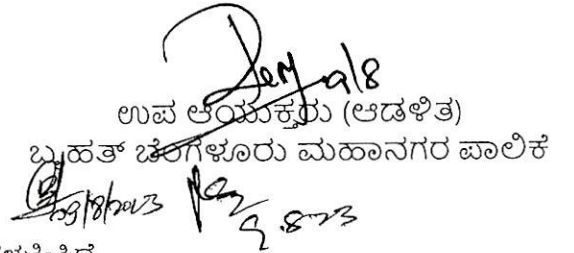 9/8
ಉಪ ಆಯುಕ್ತರು (ಆಡಳಿತ)
ಬೃಹತ್ ಬೆಂಗಳೂರು ಮಹಾನಗರ ಪಾಲಿಕೆ
09/8/2023
9.8.23